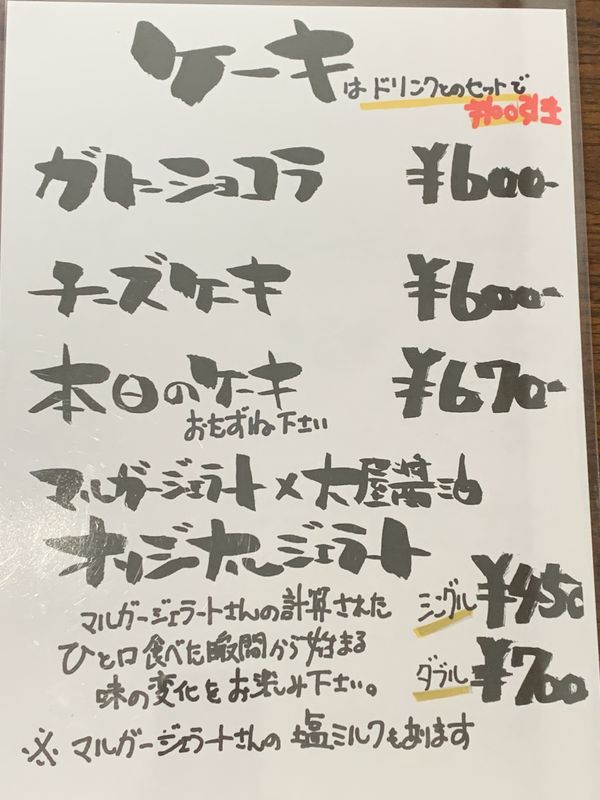 ケーキはドリンクとのセットで
¥100引き
ガトーショコラ ¥600-
チーズケーキ ¥600-
本日のケーキ ¥670-
おたずね下さい
マルガージェラート×大屋醤油
オリジナルジェラート
マルガージェラートさんの計算された
ひと口食べた瞬間から始まる
味の変化をお楽しみ下さい。
シングル ¥450
ダブル ¥700
※マルガージェラートさんの塩ミルクもあります